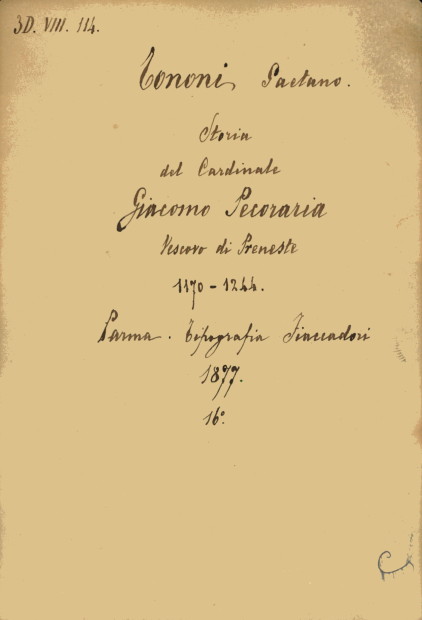 3D. VIII. 114.
Tononi Gaetano.
Storia
del Cardinale
Giacomo Pecoraria
Vescovo di Preneste
1170 - 1244.
Parma. Tipografia Fiaccadori
1877.
16°.
C